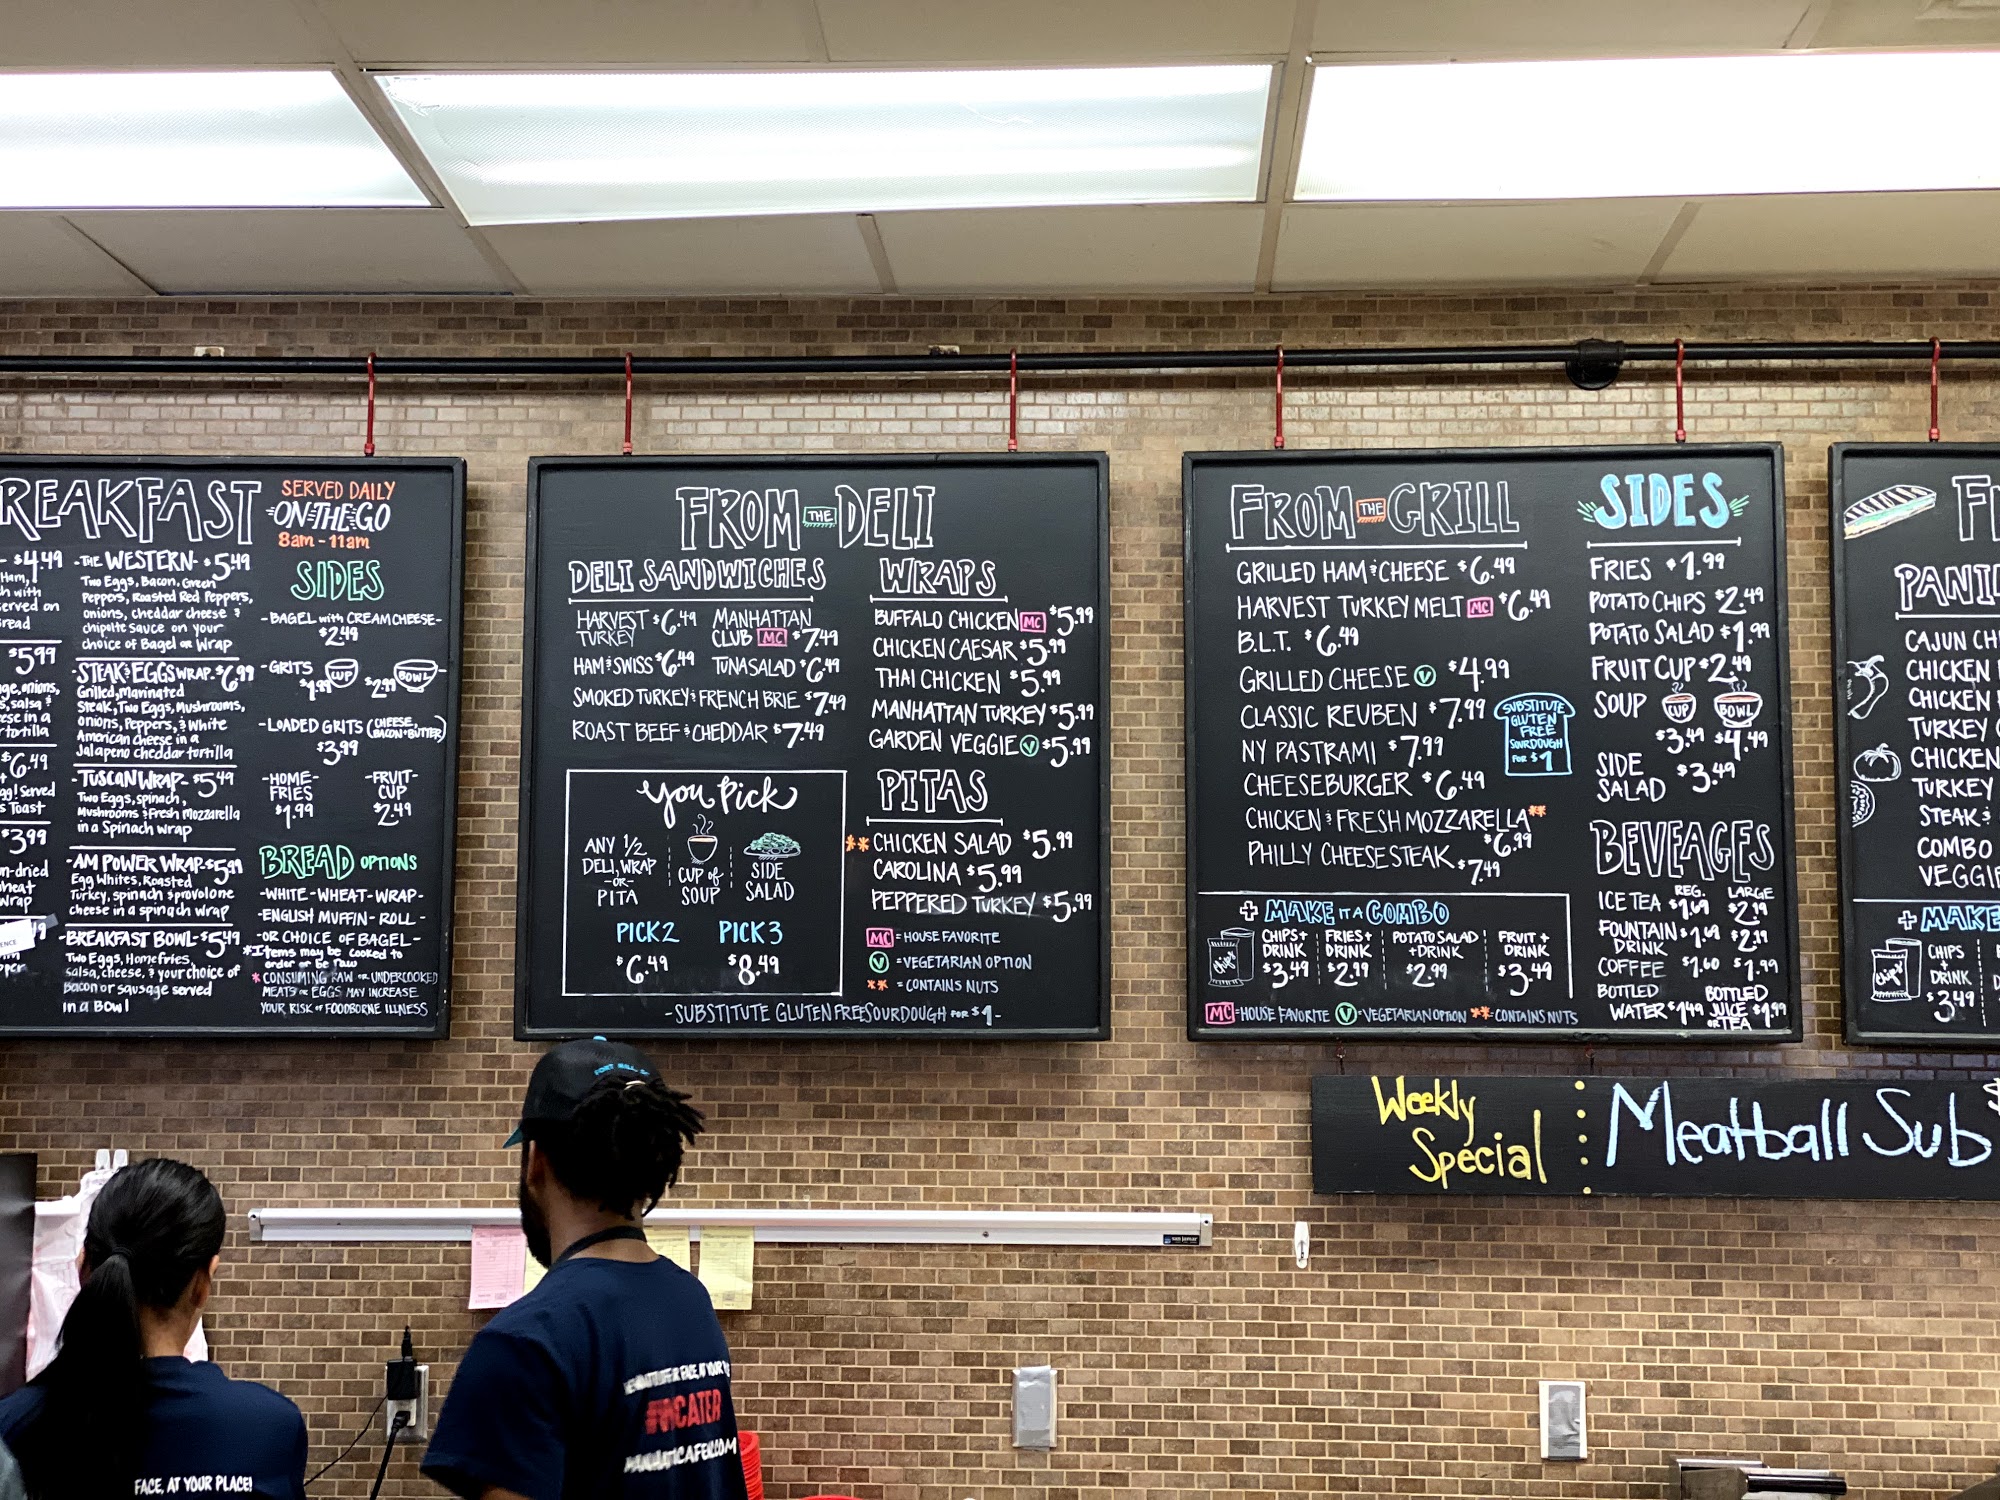 REAKFAST
SERVED DAILY
ON THE GO
8am - 11am
- $4.49
Ham,
h with
erved on
read
$5.99
ge, onions,
s, salsa &
ese in a
tortilla
$6.49
gg! Served
s Toast
$3.99
n-dried
heat
wrap
-THE WESTERN- $5.49
Two Eggs, Bacon, Green
Peppers, Roasted Red Peppers,
onions, cheddar cheese &
chipotle sauce on your
choice of Bagel or Wrap
-STEAK & EGGS WRAP- $6.99
Grilled, Marinated
Steak, Two Eggs, Mushrooms,
onions, Peppers, & White
American cheese in a
Jalapeno cheddar tortilla
-TUSCAN WRAP- $5.49
Two Eggs, spinach,
Mushrooms & Fresh Mozzarella
in a Spinach wrap
-AM POWER WRAP- $5.99
Egg Whites, Roasted
Turkey, spinach & provolone
cheese in a spinach wrap
-BREAKFAST BOWL- $5.49
Two Eggs, Homefries,
Salsa, cheese, & your choice of
Bacon or sausage served
in a Bowl
SIDES
-BAGEL with CREAM CHEESE-
$2.49
-GRITS CUP BOWL-
$1.99 $2.99
-LOADED GRITS (CHEESE, BACON & BUTTER)
$3.99
-HOME-FRIES
$1.99
-FRUIT-CUP
$2.49
BREAD OPTIONS
-WHITE-WHEAT-WRAP-
-ENGLISH MUFFIN-ROLL-
-OR CHOICE OF BAGEL-
*Items may be cooked to
order or be raw
*CONSUMING RAW OR UNDERCOOKED
MEATS OR EGGS MAY INCREASE
YOUR RISK OF FOODBORNE ILLNESS
FROM THE DELI
DELI SANDWICHES
HARVEST TURKEY $6.49
MANHATTAN CLUB MC $7.49
HAM & SWISS $6.49
TUNA SALAD $6.49
SMOKED TURKEY & FRENCH BRIE $7.49
ROAST BEEF & CHEDDAR $7.49
you Pick
ANY 1/2
DELI, WRAP
-OR-
PITA
CUP of
SOUP
SIDE
SALAD
PICK 2 PICK 3
$6.49 $8.49
WRAPS
BUFFALO CHICKEN MC $5.99
CHICKEN CAESAR $5.99
THAI CHICKEN $5.99
MANHATTAN TURKEY $5.99
GARDEN VEGGIE V $5.99
PITAS
** CHICKEN SALAD $5.99
CAROLINA $5.99
PEPPERED TURKEY $5.99
MC = HOUSE FAVORITE
V = VEGETARIAN OPTION
** = CONTAINS NUTS
-SUBSTITUTE GLUTEN FREE SOURDOUGH FOR $1-
FROM THE GRILL
GRILLED HAM & CHEESE $6.49
HARVEST TURKEY MELT MC $6.49
B.L.T. $6.49
GRILLED CHEESE V $4.99
CLASSIC REUBEN $7.99
NY PASTRAMI $7.99
CHEESEBURGER $6.49
CHICKEN & FRESH MOZZARELLA**
$6.99
PHILLY CHEESESTEAK $7.49
SUBSTITUTE
GLUTEN
FREE
SOURDOUGH
FOR $1
+ MAKE IT A COMBO
Chips
CHIPS +
DRINK
$3.49
FRIES +
DRINK
$2.79
POTATO SALAD
+ DRINK
$2.99
FRUIT +
DRINK
$3.49
MC = HOUSE FAVORITE V = VEGETARIAN OPTION ** = CONTAINS NUTS
SIDES
FRIES $1.99
POTATO CHIPS $2.49
POTATO SALAD $1.99
FRUIT CUP $2.49
SOUP CUP BOWL
$3.49 $4.49
SIDE
SALAD $3.49
BEVEAGES
REG. LARGE
ICE TEA $1.69 $2.19
FOUNTAIN
DRINK $1.69 $2.19
COFFEE $1.60 $1.99
BOTTLED
WATER $1.49
BOTTLED
JUICE
OR TEA $1.99
F
PANI
CAJUN CH
CHICKEN
CHICKEN
TURKEY C
CHICKEN
TURKEY
STEAK &
COMBO
VEGGIE
+ MAKE
Chips
CHIPS
+
DRINK
$3.49
Weekly
Special
Meatball Sub $
FORT MILL, SC
san jamar
FACE, AT YOUR PLACE!
FACE, AT YOUR
CATER